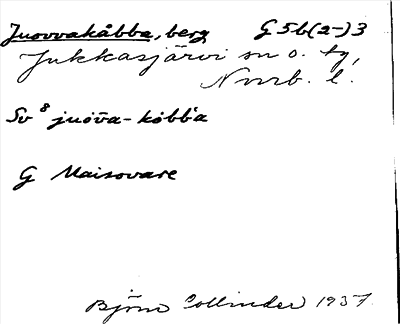 Juovvakåbba, berg G5b(2-)3
Jukkasjärvi sn o. tg,
Nrrb. l.
Sv 8 juōva-kåbb'a
G Maisovare
Björn Collinder 1937